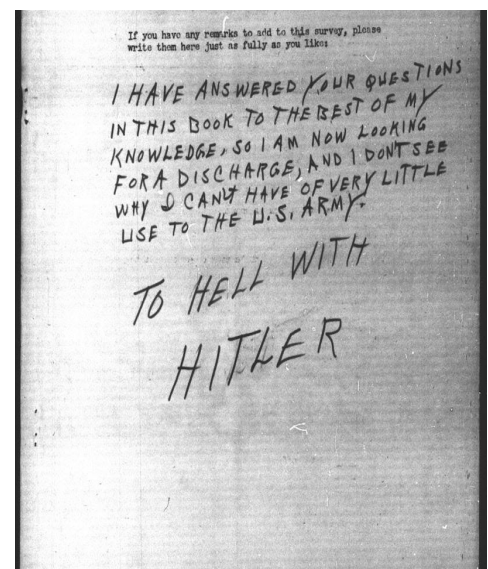 If you have any remarks to add to this survey, please
write them here just as fully as you like:
I HAVE ANSWERED YOUR QUESTIONS
IN THIS BOOK TO THE BEST OF MY
KNOWLEDGE, SO I AM NOW LOOKING
FOR A DISCHARGE, AND I DON'T SEE
WHY I CAN'T HAVE OF VERY LITTLE
USE TO THE U.S. ARMY.
TO HELL WITH
HITLER